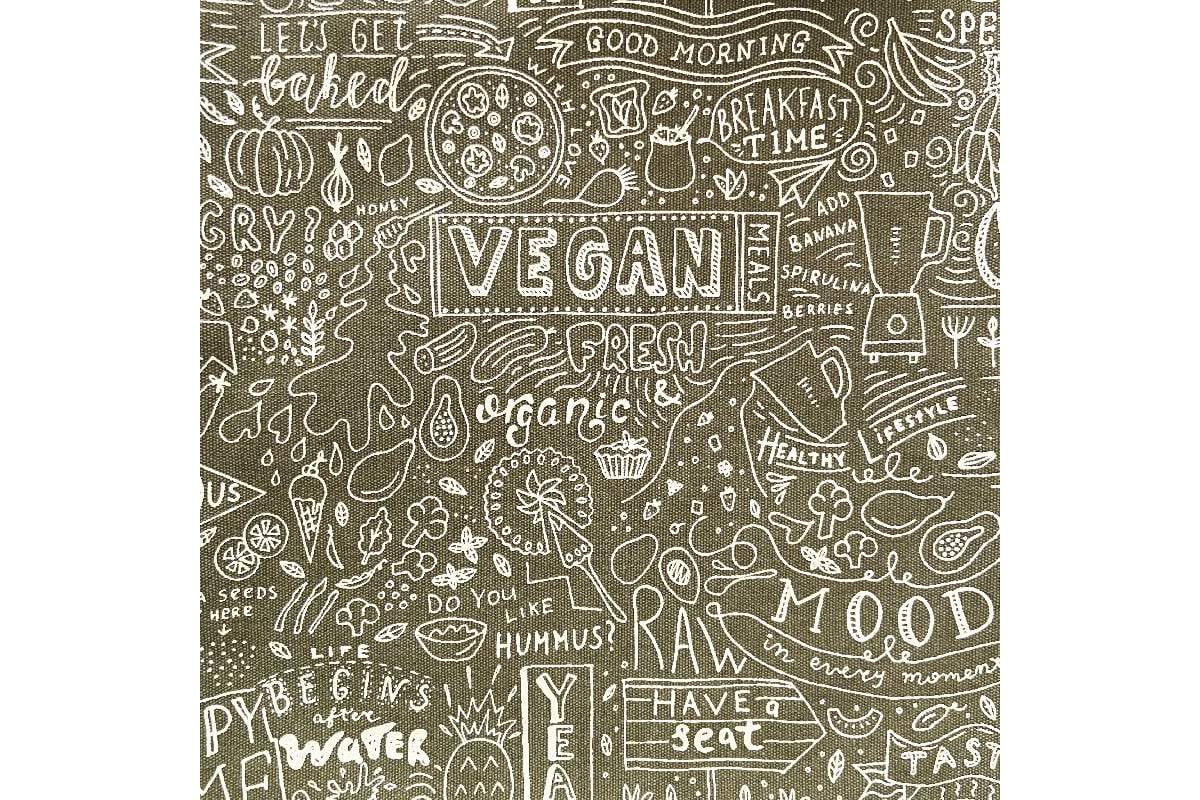 LET'S GET
baked
GOOD MORNING
SPE
WITH LOVE
BREAKFAST
TIME
GRY?
HONEY
VEGAN
MEALS
ADD
BANANA
SPIRULINA
BERRIES
FRESH
&
organic
HEALTHY
LIFESTYLE
US
A SEEDS
HERE
DO YOU
LIKE
HUMMUS?
RAW
MOOD
in every moment
LIFE
BEGINS
after
WATER
PY
ME
YEA
HAVE a
seat
TAST